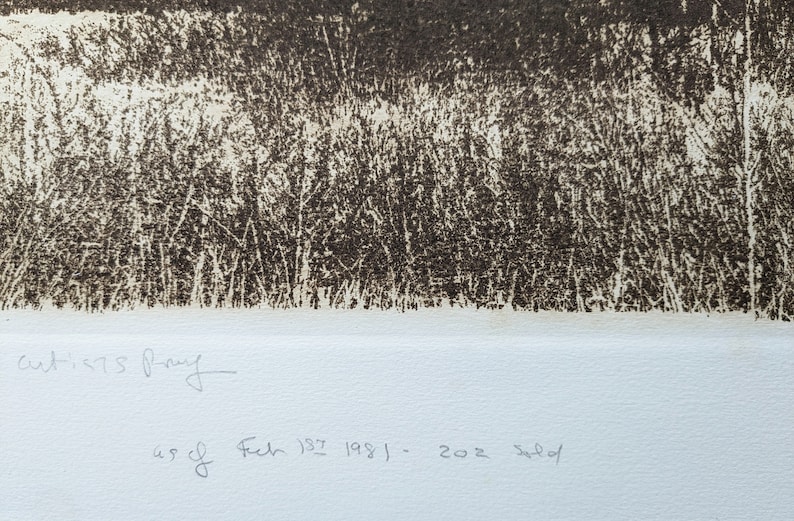 artists Proof
as of Feb 1st 1981 - 202 sold